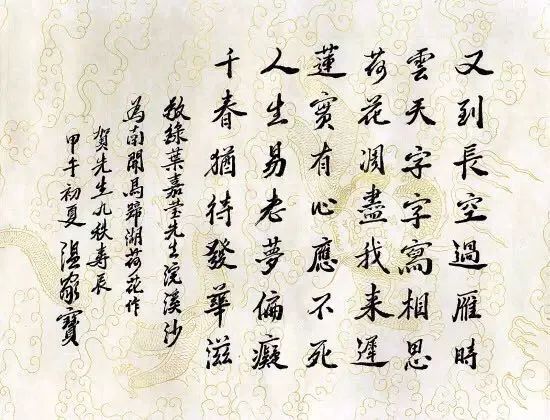 又到長空過雁時
雲天字字寫相思
荷花凋盡我来遲
蓮實有心應不死
人生易老夢偏癡
千春猶待發華滋
敬錄葉嘉莹先生浣溪沙
为南開馬蹄湖荷花作
賀先生九秩寿辰
甲午初夏 温家寶